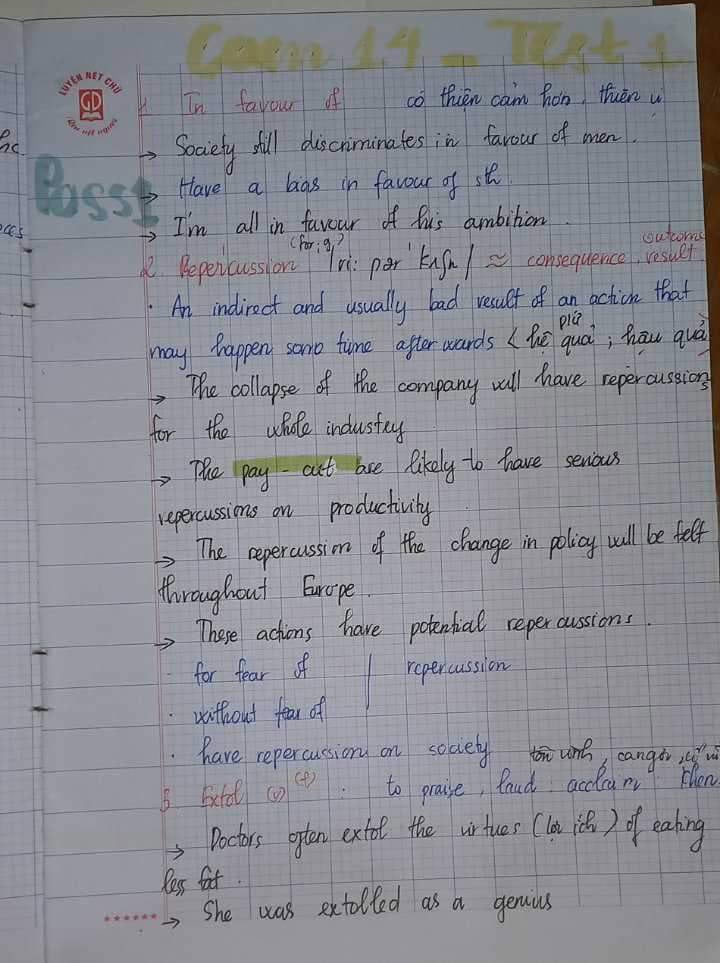 Cam 14 - Test 1
LUYỆN NÉT CHỮ
GD
Pass1
1 In favour of có thiện cảm hơn, thiên vị
→ Society still discriminates in favour of men.
→ Have a bias in favour of sth.
→ I'm all in favour of his ambition.
(for, of) outcome
2 Repercussion /ri: pər'kʌʃn/ ≈ consequence, result
· An indirect and usually bad result of an action that
may happen some time afterwards < hệ quả ; hậu quả
→ The collapse of the company will have repercussions
for the whole industry
→ The pay - cut are likely to have serious
repercussions on productivity
→ The repercussion of the change in policy will be felt
throughout Europe.
→ These actions have potential repercussions.
· for fear of repercussion
· without fear of
· have repercussion on society tôn vinh, ca ngợi
3 Extol (v) (+) · to praise, laud, acclaim khen
→ Doctors often extol the virtues (lợi ích) of eating
less fat.
→ She was extolled as a genius